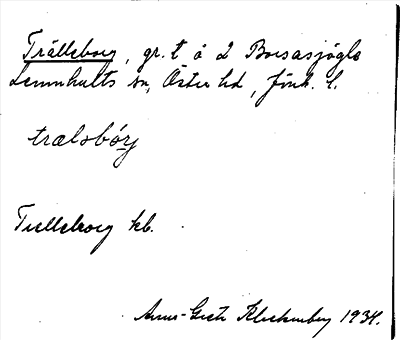 Trälleborg, gr. t å 2 Bossasjögle
Lemnhults sn, Öster hd, Jönk. l.
trælsbórj
Trelleborg kb.
Anna-Greta Kleckenberg 1934.